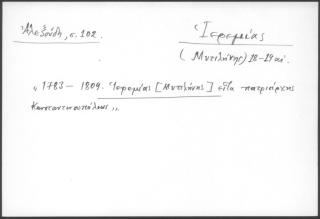 Ἀλεξούδη, σ. 102.
Ἱερεμίας
(Μυτιλήνης) 18-19 αἰ.
« 1783 – 1809. Ἱερεμίας [Μυτιλήνης] εἶτα πατριάρχης
Κωνσταντινουπόλεως ».